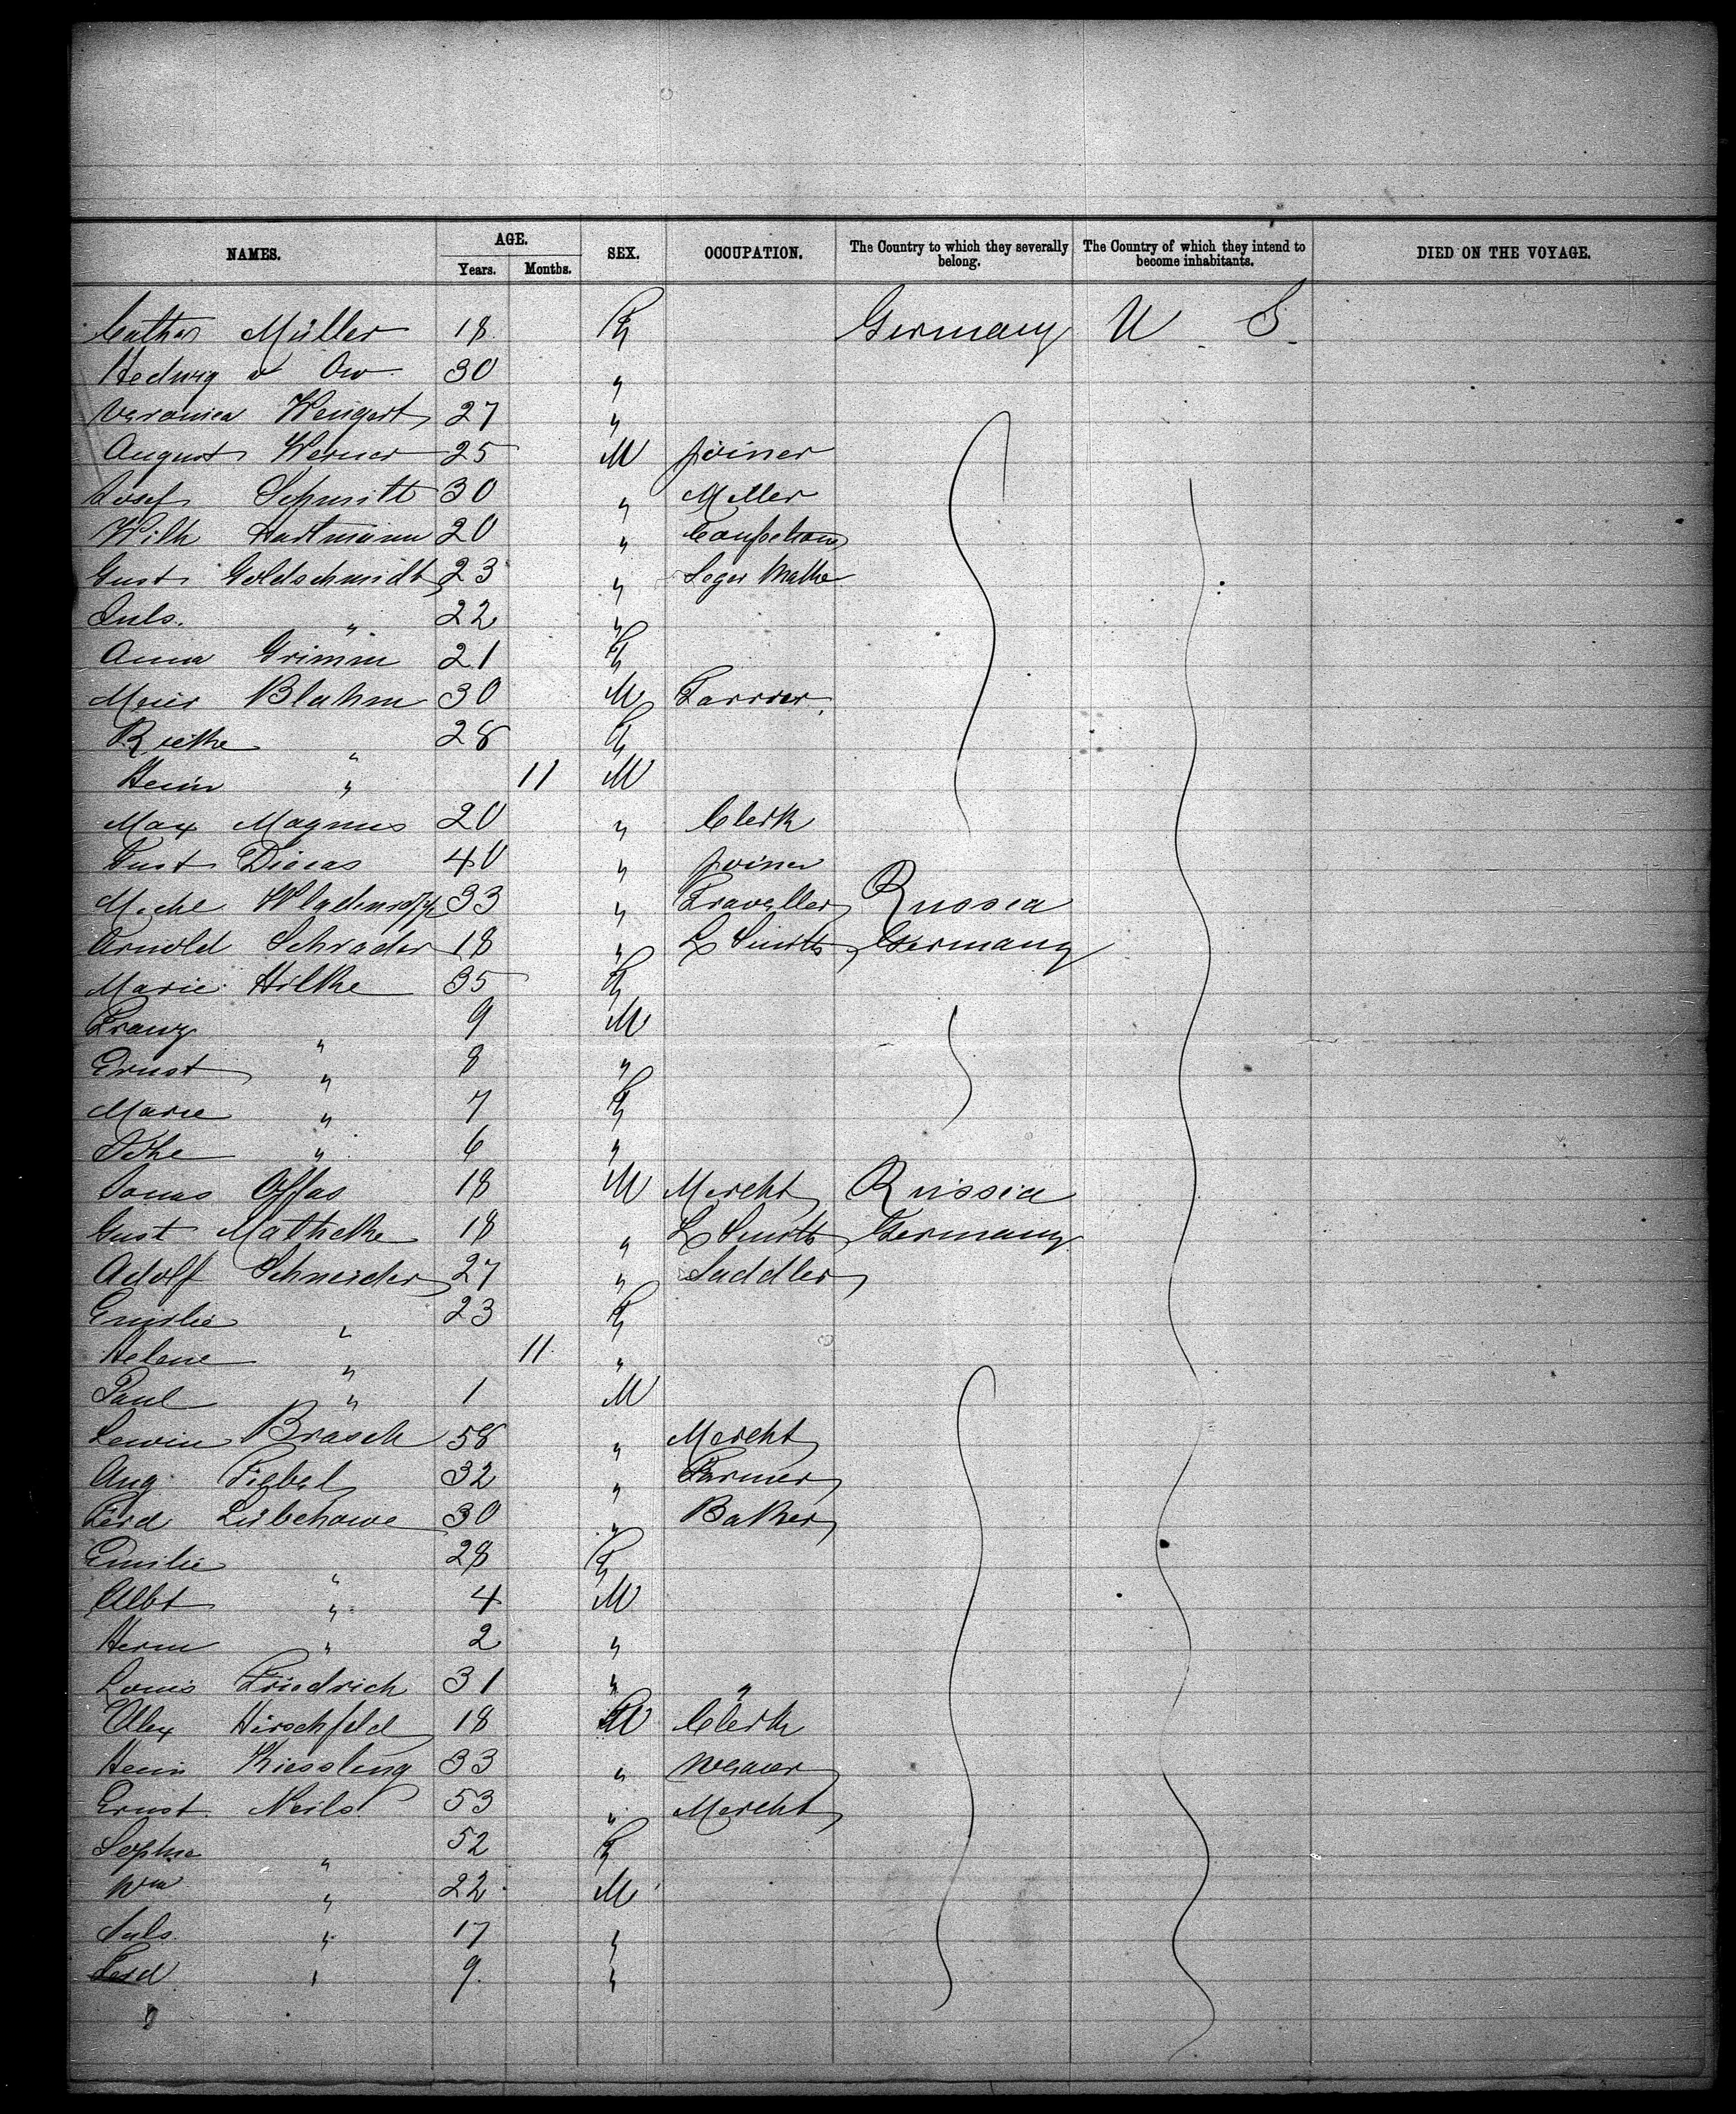 NAMES. AGE. SEX. OCCUPATION. The Country to which they severally belong. The Country of which they intend to become inhabitants. DIED ON THE VOYAGE.
Years. Months.
Müller 18 F Germany U. S.
Hedwig v Ow 30 "
Veronica Wengert 27 "
August Werner 25 M joiner
Josef Schmitt 30 " Miller
Wilh Hartmann 20 "
Gust Goldschmidt 23 "
Juls. " 22 "
Anna Grimm 21 F
Meier Blahm 30 M Farrier
" 28 F
Heinr " 11 M
Max Magnus 20 " Clerk
40 " joiner
33 " Traveller Russia
Arnold Schrader 18 " L Smith Germany
Marie Hilke 35 F
Franz " 9 M
Ernst " 8 "
Marie " 7 F
" 6 "
Jonas 18 M Mercht Russia
Gust Mathetke 18 " L Smith Germany
Adolf Schneider 27 " Saddler
Emilie " 23 F
Helene " 11 "
Paul " 1 M
Lewin Brasch 58 " Mercht
Aug Fiebel 32 " Farmer
Ferd 30 " Baker
Emilie " 28 F
Albt " 4 M
Herm " 2 "
Louis Friedrich 31 " "
Alex Hirschfeld 18 M Clerk
Heinr Kiessling 33 " weaver
Ernst Neils 53 " Mercht
Sophie " 52 F
Wm " 22 M
Juls. " 17 "
Ferd " 9 "